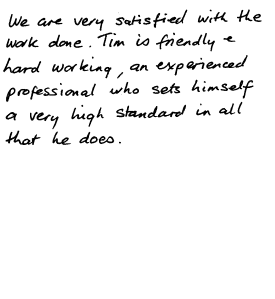 We are very satisfied with the
work done. Tim is friendly &
hard working, an experienced
professional who sets himself
a very high standard in all
that he does.